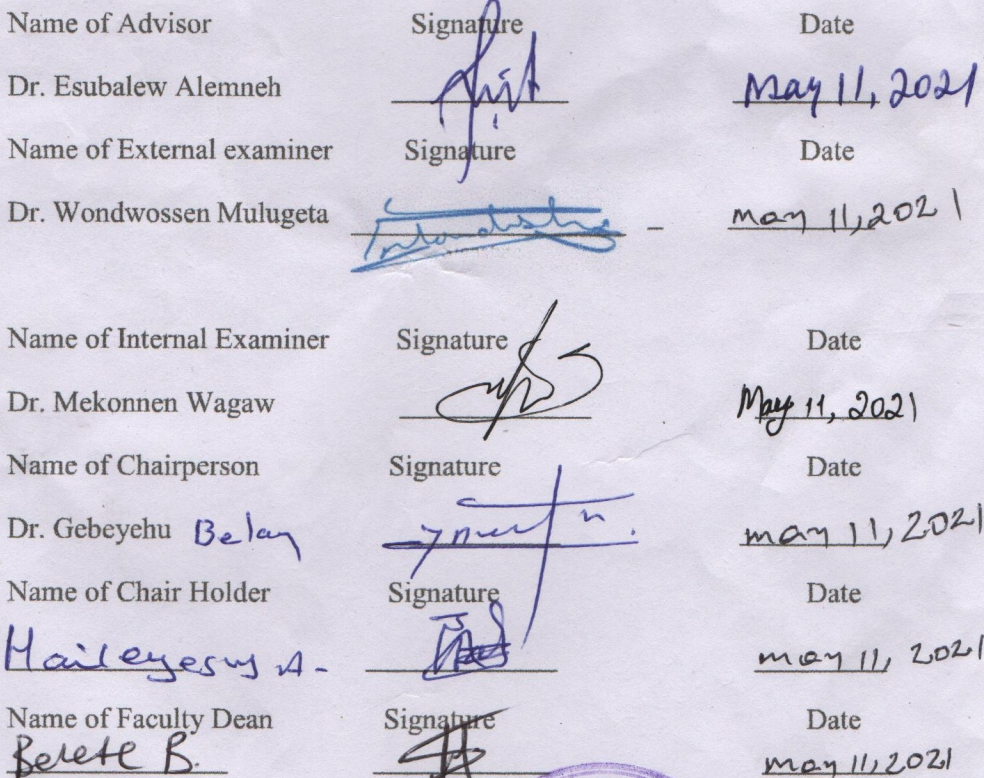 Name of Advisor Signature Date
Dr. Esubalew Alemneh May 11, 2021
Name of External examiner Signature Date
Dr. Wondwossen Mulugeta may 11, 2021
Name of Internal Examiner Signature Date
Dr. Mekonnen Wagaw May 11, 2021
Name of Chairperson Signature Date
Dr. Gebeyehu Belay may 11, 2021
Name of Chair Holder Signature Date
Haileyesus A. may 11, 2021
Name of Faculty Dean Signature Date
Belete B. may 11, 2021